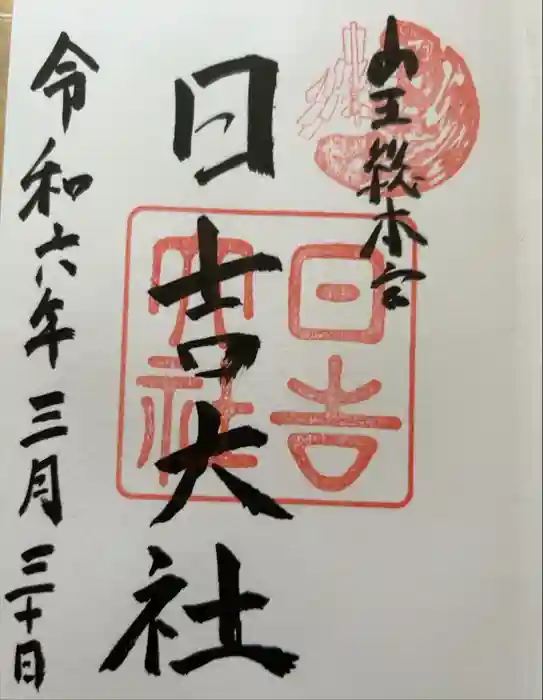 山王総本宮
日吉大社
令和六年三月三十日
日吉
大社